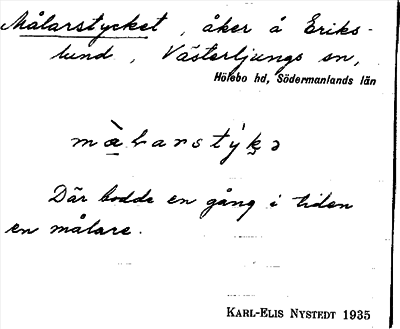 Målarstycket, åker å Eriks-
lund, Västerljungs sn,
Hölebo hd, Södermanlands län
Där bodde en gång i tiden
en målare.
KARL-ELIS NYSTEDT 1935